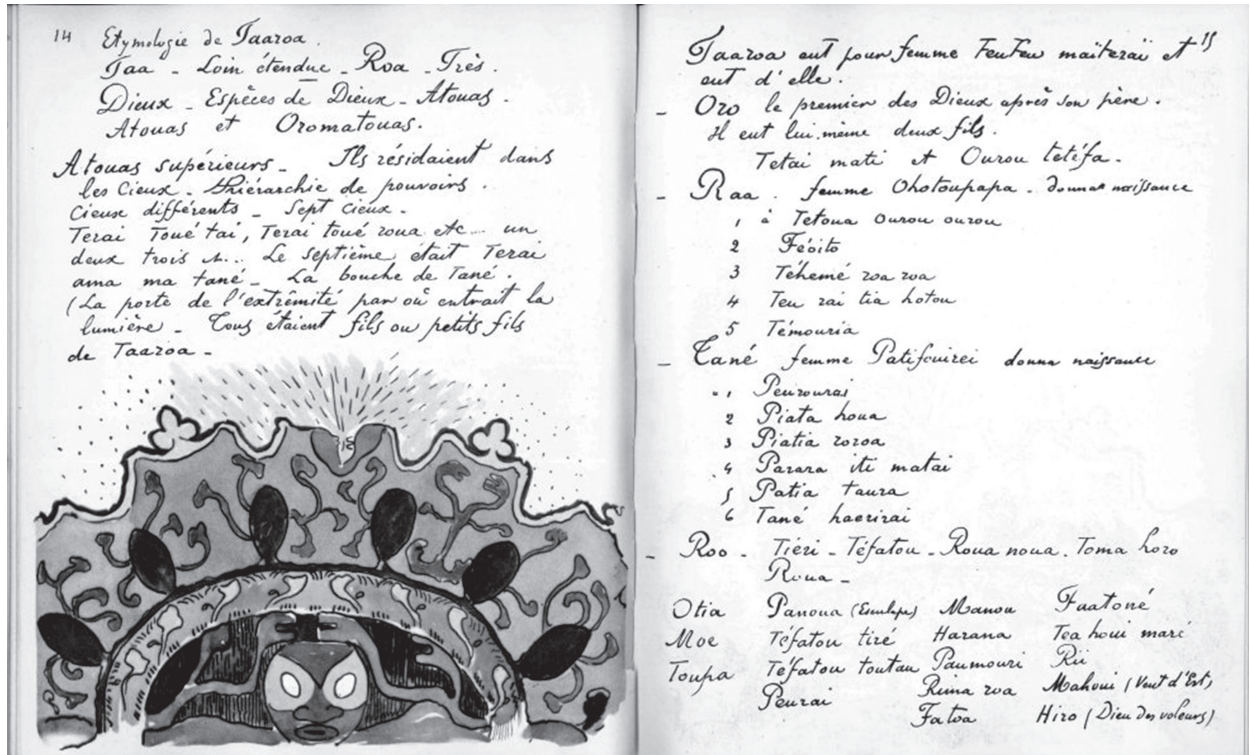 14
Etymologie de Taaroa.
Taa - Loin étendue - Roa - Très.
Dieux - Espèces de Dieux - Atouas.
Atouas et Oromatouas.
Atouas supérieurs - Ils résidaient dans
les Cieux - Hiérarchie de pouvoirs.
Cieux différents - Sept Cieux -
Terai Toué tai, Terai toué roua etc... un
deux trois ... Le septième était Terai
ama ma tané - La bouche de Tané.
(La porte de l'extrêmité par où entrait la
lumière - Tous étaient fils ou petits fils
de Taaroa -
15
Taaroa eut pour femme FeuFeu maïteraï et
eut d'elle.
- Oro le premier des Dieux après son père.
Il eut lui.même deux fils.
Tetai mati et Ourou tetéfa.
- Raa. femme Ohotoupapa - donna naissance
1 à Tetoua ourou ourou
2 Féoito
3 Téhemé roa roa
4 Teu rai tia hotou
5 Témouria
- Tané femme Patifouirei donna naissance
1 Peurourai
2 Piata houa
3 Piatia roroa
4 Parara iti matai
5 Patia taura
6 Tané haerirai
- Roo - Tiéri - Téfatou - Roua noua. Toma horo
Roua -
Otia Panoua (Esculape) Manou Fuatoné
Moe Téfatou tiré Harana Tea houi maré
Toupa Téfatou toutau Paumouri Rii
Peurai Rima roa Mahoui (Vent d'Est)
Fatoa Hiro (Dieu des voleurs)